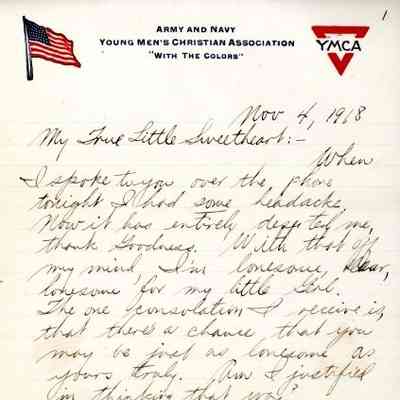 1
ARMY AND NAVY
YOUNG MEN'S CHRISTIAN ASSOCIATION
"WITH THE COLORS"
YMCA
Nov 4, 1918
My True Little Sweetheart:-
When
I spoke to you over the phone
tonight I had some headache.
Now it has entirely deserted me,
thank Goodness. With that off
my mind, I'm lonesome, Dear,
lonesome for my little Girl.
The one consolation I receive is
that there's a chance that you
may be just as lonesome as
yours truly. Am I justified
in thinking that way?